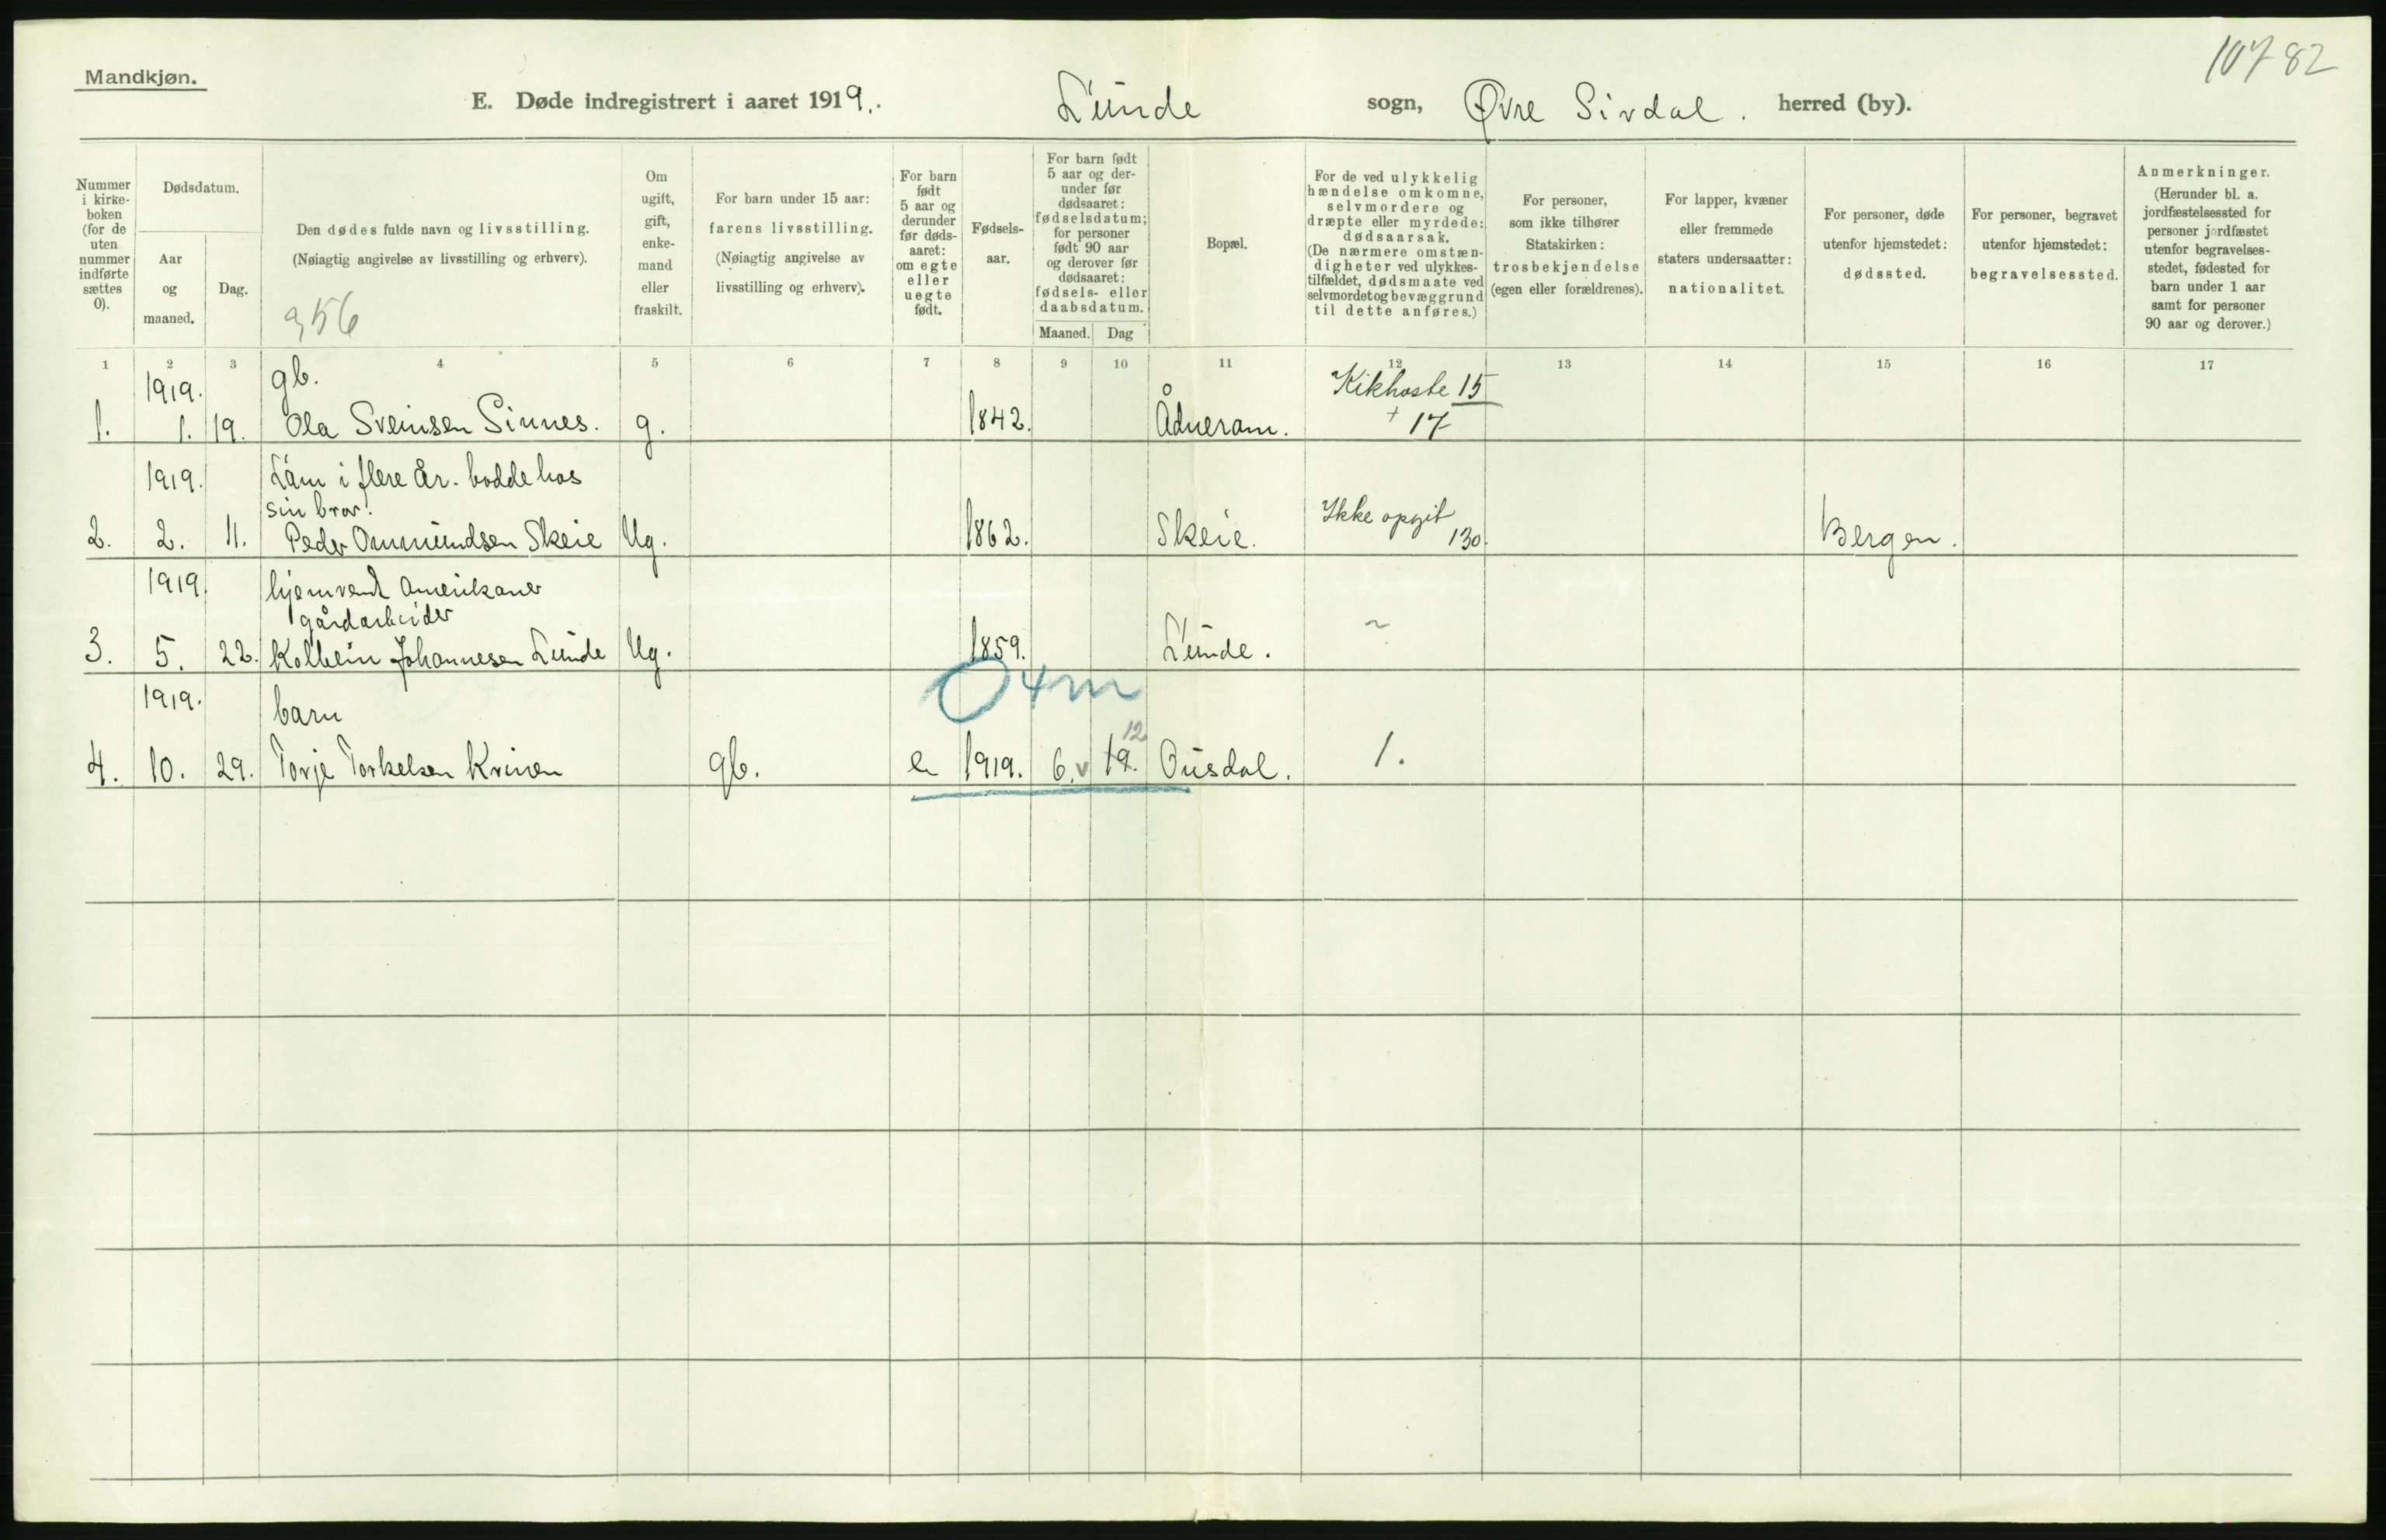 10782
Mandkjøn.
E. Døde indregistrert i aaret 1919. Lunde sogn, Øvre Sirdal. herred (by).
Nummer i kirkeboken (for de uten nummer indførte sættes 0).
Dødsdatum.
Aar og maaned.
Dag.
Den dødes fulde navn og livsstilling.
(Nøiagtig angivelse av livsstilling og erhverv).
956
Om ugift, gift, enkemand eller fraskilt.
For barn under 15 aar: farens livsstilling.
(Nøiagtig angivelse av livsstilling og erhverv).
For barn født 5 aar og derunder før dødsaaret: om egte eller uegte født.
Fødselsaar.
For barn født 5 aar og derunder før dødsaaret: fødselsdatum; for personer født 90 aar og derover før dødsaaret: fødsels- eller daabsdatum.
Maaned. Dag
Bopæl.
For de ved ulykkelig hændelse omkomne, selvmordere og dræpte eller myrdede: dødsaarsak.
(De nærmere omstændigheter ved ulykkestilfældet, dødsmaate ved selvmordet og bevæggrund til dette anføres.)
For personer, som ikke tilhører Statskirken: trosbekjendelse (egen eller forældrenes).
For lapper, kvæner eller fremmede staters undersaatter: nationalitet.
For personer, døde utenfor hjemstedet: dødssted.
For personer, begravet utenfor hjemstedet: begravelsessted.
Anmerkninger.
(Herunder bl. a. jordfæstelsessted for personer jordfæstet utenfor begravelsesstedet, fødested for barn under 1 aar samt for personer 90 aar og derover.)
1 2 3 4 5 6 7 8 9 10 11 12 13 14 15 16 17
1919. gb. Kikhoste 15
1. 1. 19. Ola Sveinsen Sinnes. g. 1842. Ådneram. + 17
1919. Lam i flere år. bodde hos
sin bror. Ikke opgit
2. 2. 11. Peder Ommundsen Skeie Ug. 1862. Skeie. 130. Bergen.
1919. hjemvendt Amerikaner
gårdarbeider
3. 5. 22. Kolbein Johannesen Lunde Ug. 1859. Lunde. ~
O 4 m
1919. barn
12
4. 10. 29. Torje Torkelsen Kvinen gb. e 1919. 6. v 19. Ousdal. 1.